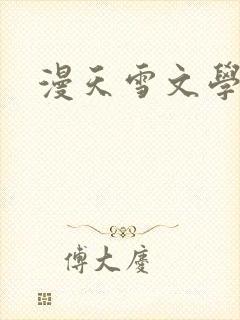 漫天雪文學
傅大慶